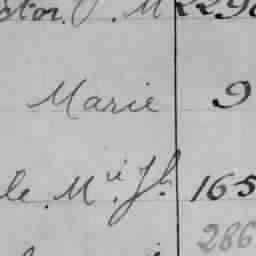 ctor. O. M 229
Marie 9
le. Mie Jh. 165
286